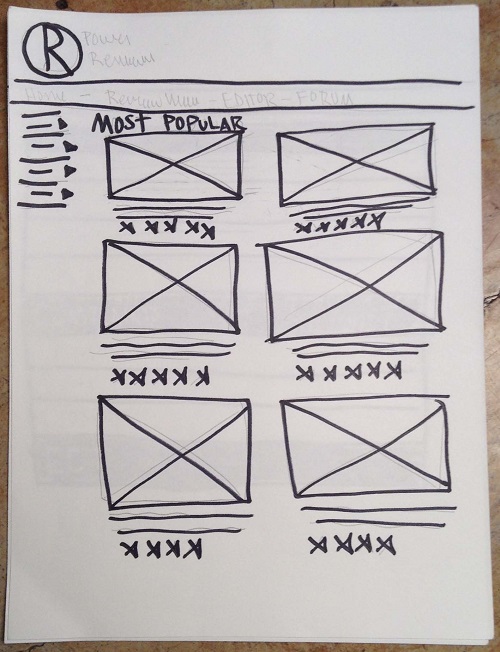 R
Power
Reviews
Home - Review - EDITOR - FORUM
MOST POPULAR